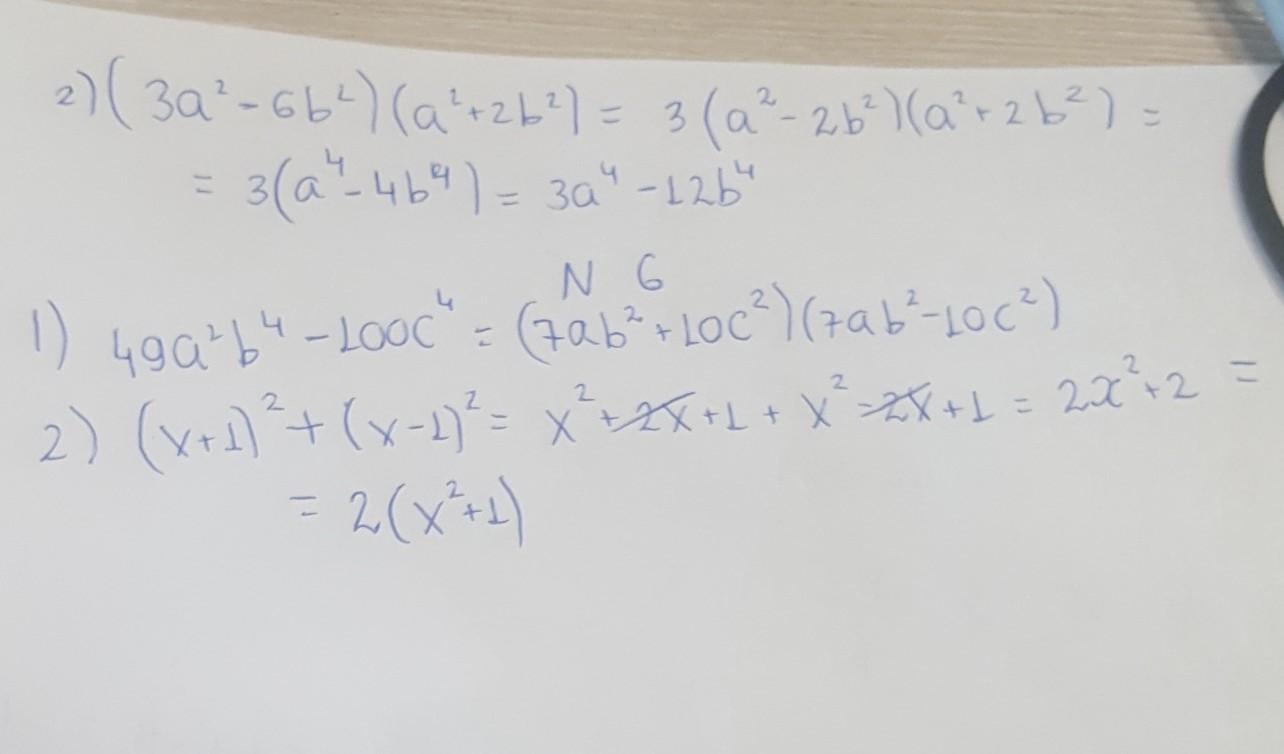 2) (3a² - 6b²)(a² + 2b²) = 3(a² - 2b²)(a² + 2b²) =
= 3(a⁴ - 4b⁴) = 3a⁴ - 12b⁴
N 6
1) 49a²b⁴ - 100c⁴ = (7ab² + 10c²)(7ab² - 10c²)
2) (x+1)² + (x-1)² = x² + 2x + 1 + x² - 2x + 1 = 2x² + 2 =
= 2(x² + 1)